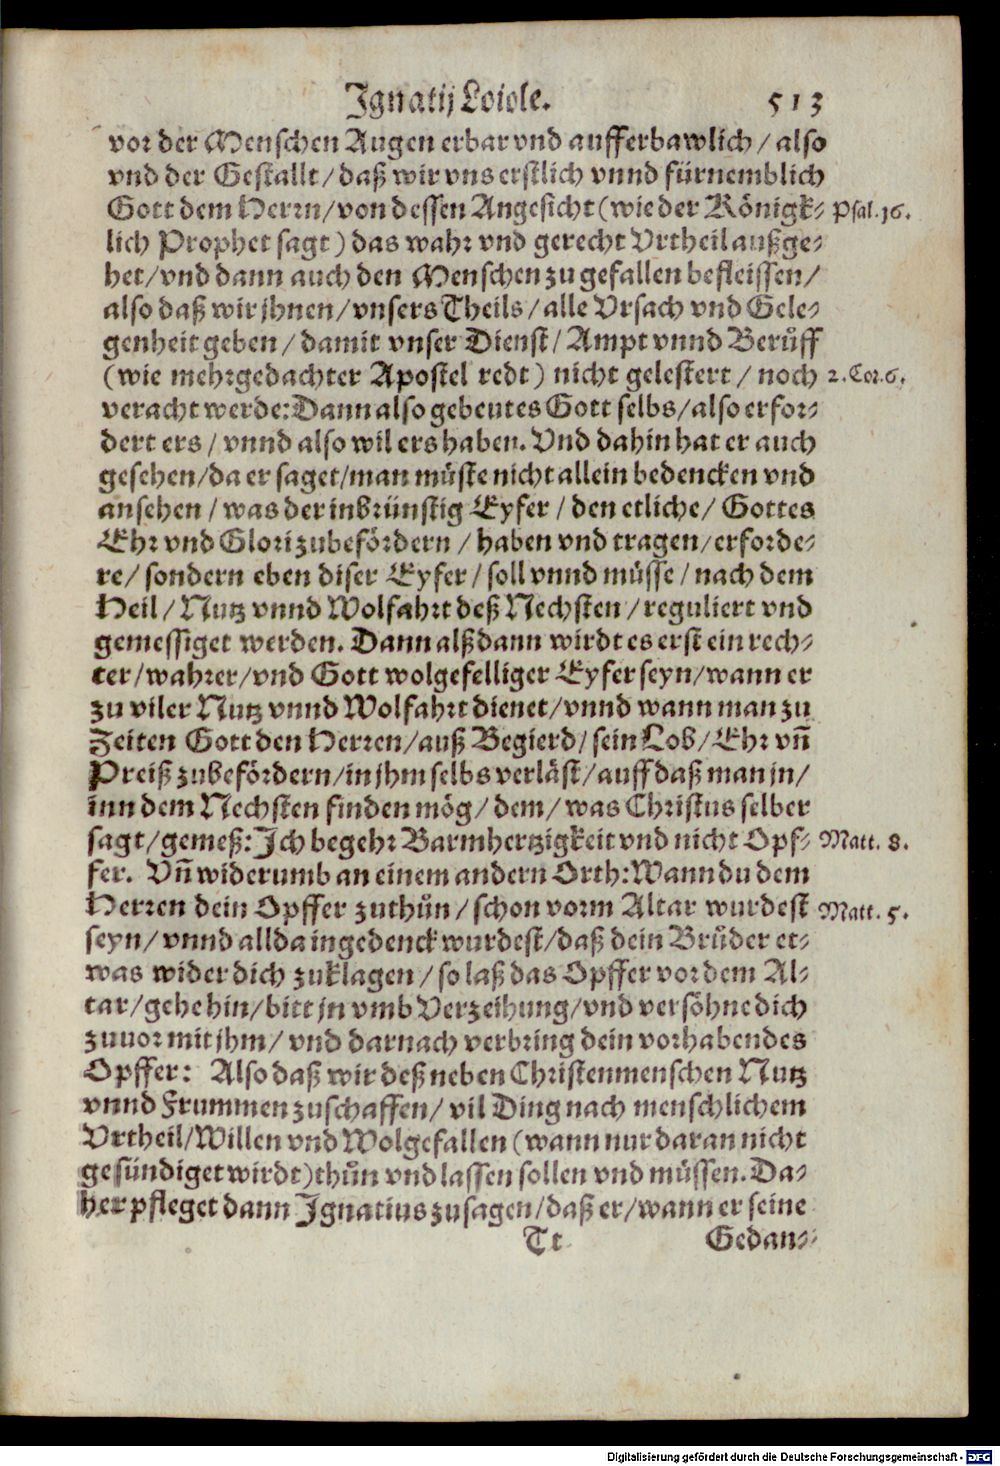 Ignatij Loiole. 513
vor der Menschen Augen erbar vnd aufferbawlich / also
vnd der Gestallt / daß wir vns erstlich vnnd fürnemblich
Gott dem Herrn / von dessen Angesicht (wie der Königk- Psal. 16.
lich Prophet sagt) das wahr vnd gerecht Vrtheil außge-
het / vnd dann auch den Menschen zu gefallen befleissen /
also daß wir jhnen / vnsers Theils / alle Vrsach vnd Gele-
genheit geben / damit vnser Dienst / Ampt vnnd Berůff
(wie mehrgedachter Apostel redt) nicht gelestert / noch 2. Cor. 6.
veracht werde: Dann also gebeut es Gott selbs / also erfor-
dert ers / vnnd also wil ers haben. Vnd dahin hat er auch
gesehen / da er saget / man müste nicht allein bedencken vnd
ansehen / was der inbrünstig Eyfer / den etliche / Gottes
Ehr vnd Glori zubefördern / haben vnd tragen / erforde-
re / sondern eben diser Eyfer / soll vnnd müsse / nach dem
Heil / Nutz vnnd Wolfahrt deß Nechsten / reguliert vnd
gemessiget werden. Dann alßdann wirdt es erst ein rech-
ter / wahrer / vnd Gott wolgefelliger Eyfer seyn / wann er
zu viler Nutz vnnd Wolfahrt dienet / vnnd wann man zu
Zeiten Gott den Herren / auß Begierd / sein Lob / Ehr vñ
Preiß zubefördern / in jhm selbs verläst / auff daß man jn /
inn dem Nechsten finden mög / dem / was Christus selber
sagt / gemeß: Ich begehr Barmhertzigkeit vnd nicht Opf- Matt. 8.
fer. Vñ widerumb an einem andern Orth: Wann du dem
Herren dein Opffer zuthůn / schon vorm Altar wurdest Matt. 5.
seyn / vnnd allda ingedenck wurdest / daß dein Brůder et-
was wider dich zuklagen / so laß das Opffer vor dem Al-
tar / gehe hin / bitt jn vmb Verzeihung / vnd versöhne dich
zuuor mit jhm / vnd darnach verbring dein vorhabendes
Opffer: Also daß wir deß neben Christenmenschen Nutz
vnnd Frummen zuschaffen / vil Ding nach menschlichem
Vrtheil / Willen vnd Wolgefallen (wann nur daran nicht
gesündiget wirdt) thůn vnd lassen sollen vnd müssen. Da-
her pfleget dann Ignatius zusagen / daß er / wann er seine
Tt Gedan-
Digitalisierung gefördert durch die Deutsche Forschungsgemeinschaft - DFG